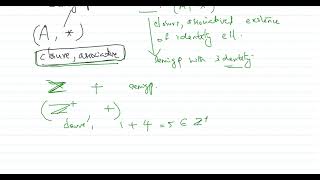 (A, *)
closure, associative
closure, associative, existence
of identity ell.
semigp with identity.
Z + semigp.
(Z⁺ +)
closure, 1 + 4 = 5 ∈ Z⁺